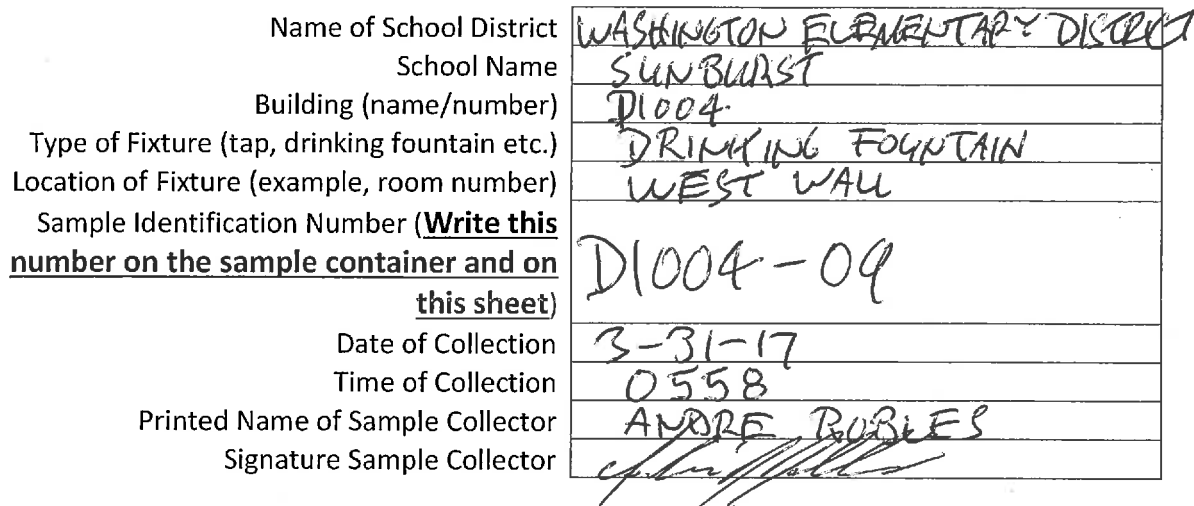 Name of School District WASHINGTON ELEMENTARY DISTRICT
School Name SUNBURST
Building (name/number) D1004
Type of Fixture (tap, drinking fountain etc.) DRINKING FOUNTAIN
Location of Fixture (example, room number) WEST WALL
Sample Identification Number (Write this
number on the sample container and on
this sheet) D1004-09
Date of Collection 3-31-17
Time of Collection 0558
Printed Name of Sample Collector ANDRE ROBLES
Signature Sample Collector